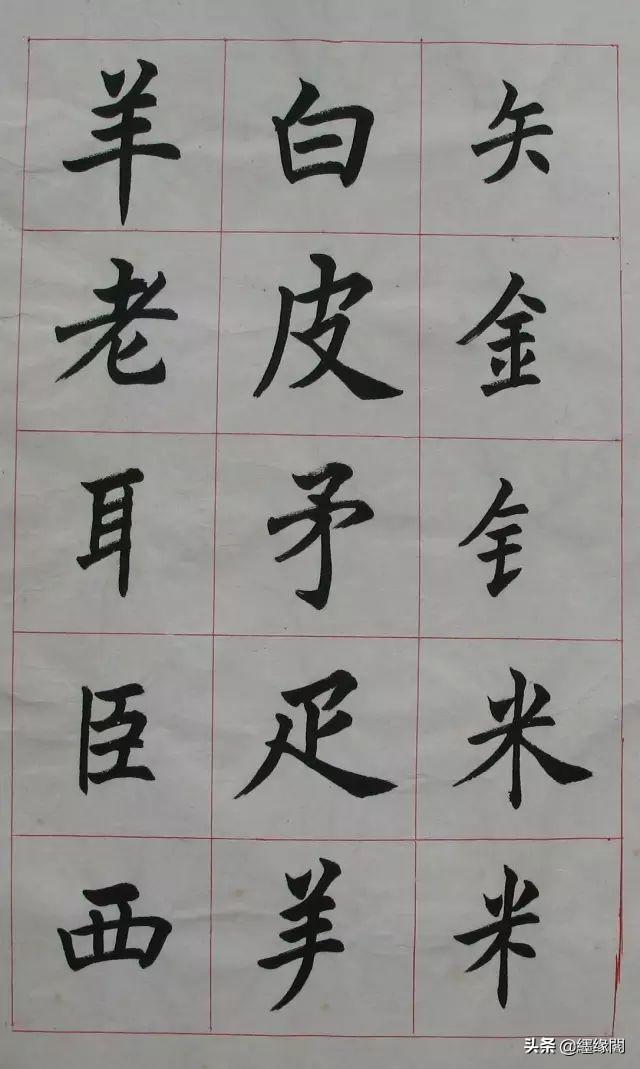 矢金釒米米
白皮矛疋⺶
羊老耳臣西
头条 @纆缘閣